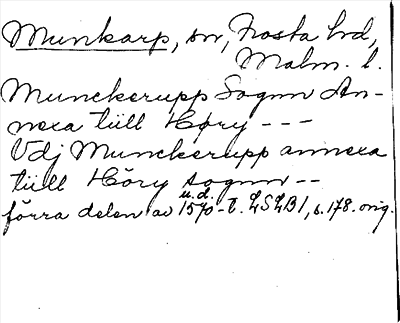 Munkarp, sn, Frosta hd,
Malm. l.
Munckerupp Sognn An-
nexa tiill Høry ---
Vdj Munckerupp annexa
tiill Höry sognn --
u. d.
förra delen av 1570-t. LSLB1, s. 178. orig.